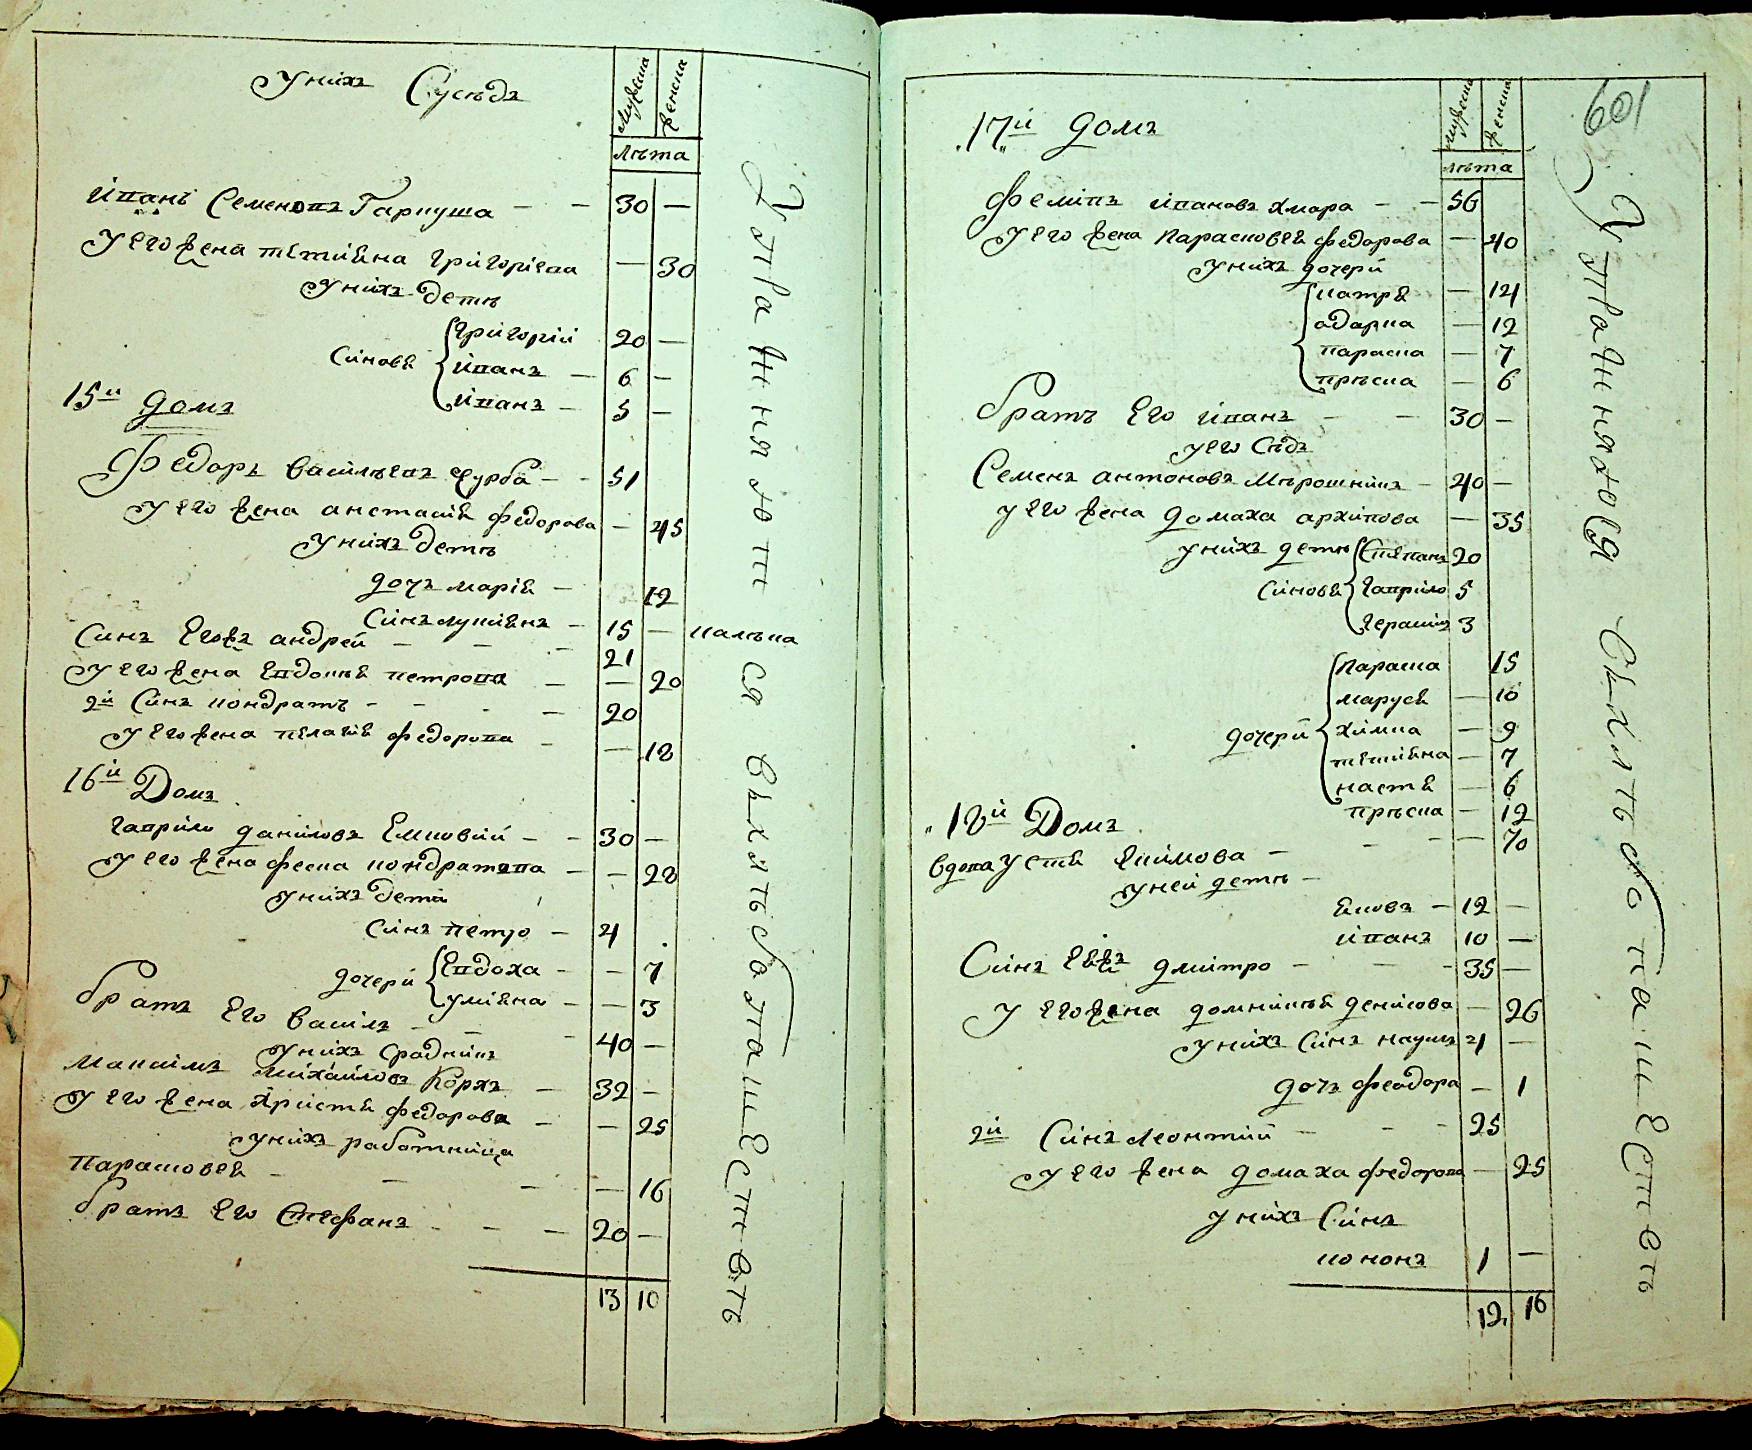 У нихъ Сусѣдъ
мужеска
женска
лѣта
иванъ Семеновъ Гаркуша — — 30 —
У его жена тетияна григориева — 30
У нихъ детѣ
григорий 20 —
Синовя иванъ — 6 —
иванъ — 5 —
15й домъ
Федоръ василъевъ журба — - 51
У его жена анстасия федорова — 45
У нихъ детѣ
дочъ мария — 12
Синъ лукиянъ — 15 — калѣка
Синъ Его жъ андрей - - — 21
У его жена Евдокия петрова — — 20
2й Синъ кондратъ - - - — 20
У его жена пелагия федорова - — 18
16й Домъ
гаврило даниловъ Емковий — - 30 —
У его жена феска кондратова - — 28
У нихъ дети
Синъ петро — 4
дочери Евдоха — — 7
улияна — — 3
братъ Его василь - — - 40 —
У нихъ Срадникъ
Максимъ михайловъ Коржъ — 32 —
У его жена христя федорова — — 25
У нихъ работница
Парасковея - — — — 16
братъ Его Стефанъ - — — 20 —
13 10
601
17й домъ
мужеска
женска
лѣта
Филипъ ивановъ хмара - — 56
У его жена Парасковея федорова — 40
У нихъ дочери
катря — 14
одарка — 12
параска — 7
прѣска — 6
братъ Его иванъ — — 30 —
У его Сѣдъ
Семенъ антоновъ Мѣрошникъ - 40 —
У его жена домаха архипова — 35
У нихъ детѣ Степанъ 20
Синовя гаврило 5
герасимъ 3
Параска 15
маруся — 10
дочери химка — 9
тетияна — 7
настя — 6
прѣска — 12
18й Домъ
вдова Устя Якимова — - - — 70
У ней детѣ -
Яковъ — 12 —
иванъ 10 —
Синъ Еяжъ дмитро — — - 35 —
У его жена домникия денисова — 26
У нихъ Синъ наумъ 4 —
дочъ феодора — 1
2й Синъ леонтий — - - 25
У его жена домаха федорова — 25
У нихъ Синъ
кононъ 1 —
12 16